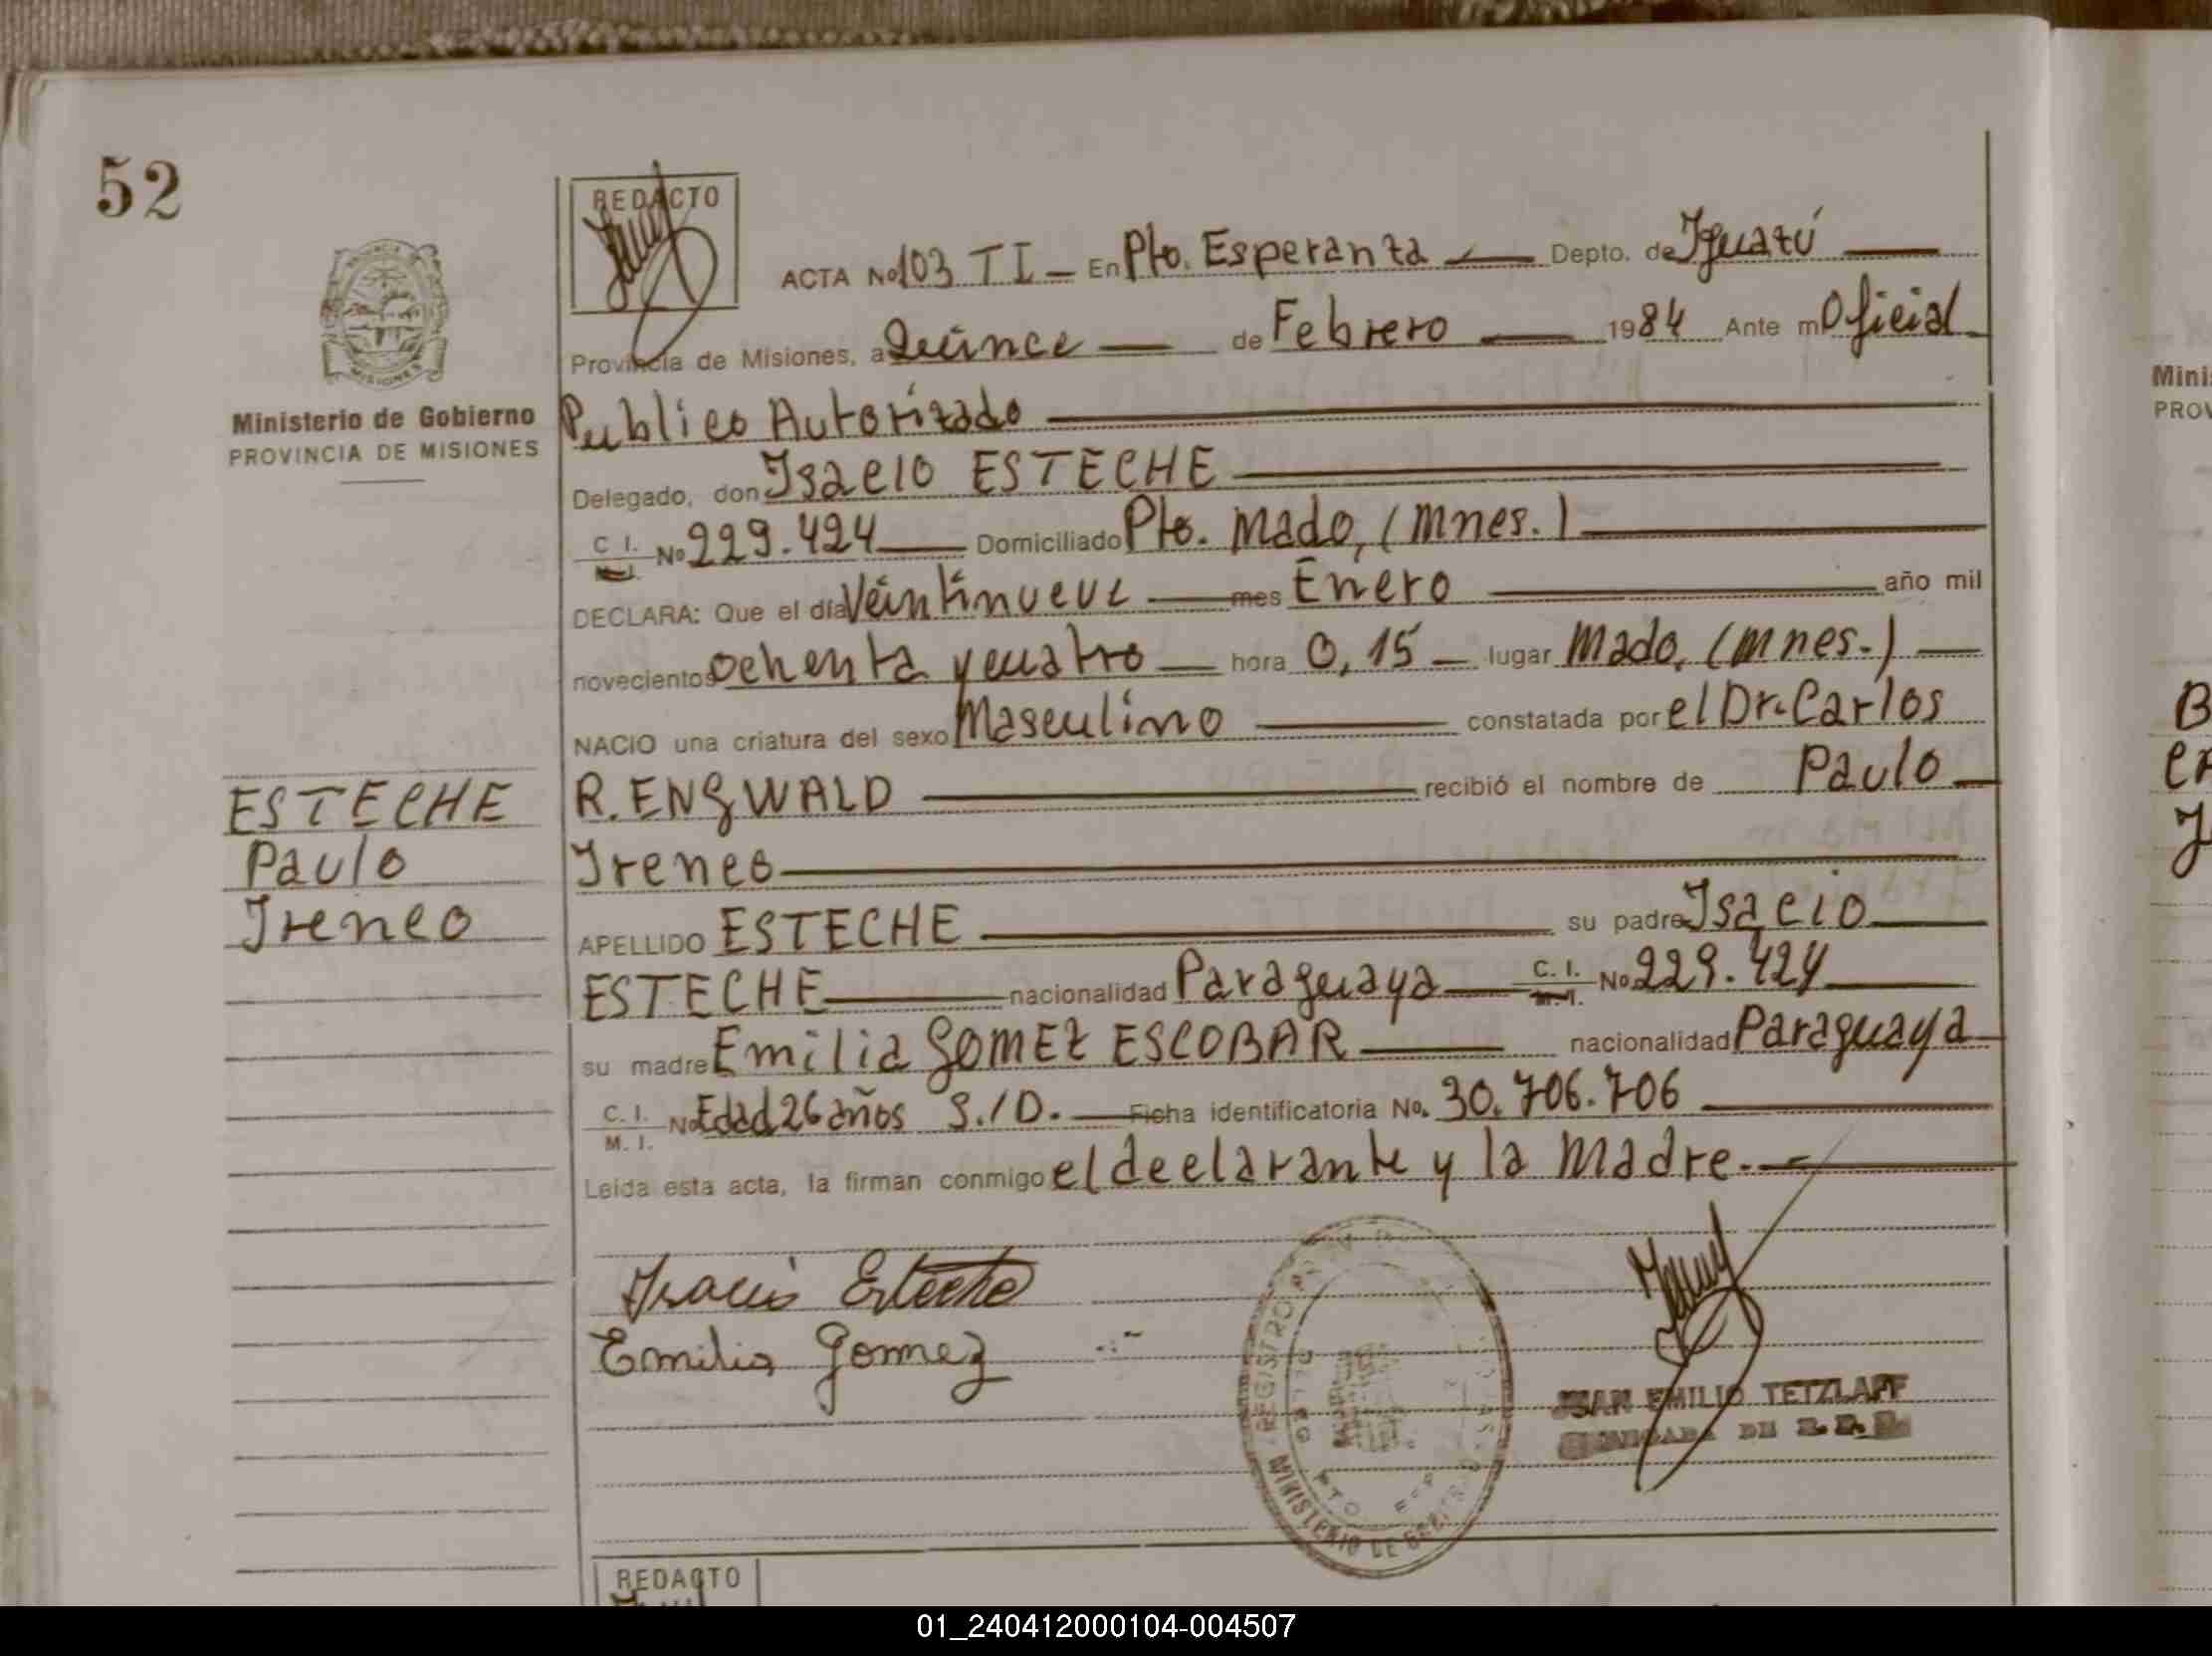 52
REDACTO
ACTA No 103 TI - En Pto. Esperanza Depto. de Iguazú
Provincia de Misiones, a Quince de Febrero 1984 Ante mi Oficial
Ministerio de Gobierno
PROVINCIA DE MISIONES
Publico Autorizado
Delegado, don Isacio ESTECHE
C. I. No 229.424 Domiciliado Pto. Mado, (Mnes.)
DECLARA: Que el día Veintinueve mes Enero año mil
novecientos ochenta y cuatro hora 0,15 lugar Mado, (Mnes.)
NACIO una criatura del sexo Masculino constatada por el Dr. Carlos
R. ENGWALD recibió el nombre de Paulo
Ireneo
ESTECHE
Paulo
Ireneo
APELLIDO ESTECHE su padre Isacio
ESTECHE nacionalidad Paraguaya C. I. M. I. No 229.424
su madre Emilia GOMEZ ESCOBAR nacionalidad Paraguaya
C. I. M. I. No Edad 26 años S./D. Ficha identificatoria No. 30.706.706
Leida esta acta, la firman conmigo el declarante y la Madre.-
Isacio Esteche
Emilia Gomez
REGISTRO
MINISTERIO DE
JUAN EMILIO TETZLAFF
REDACTO
Minis
PROV
01_240412000104-004507